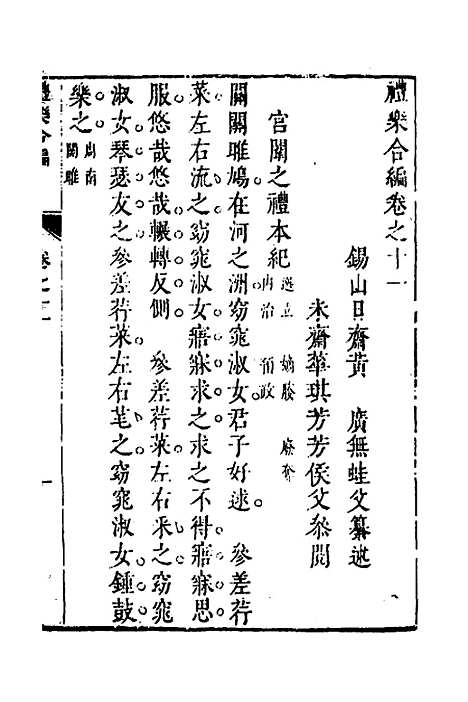 禮樂合編卷之十一
錫山日齋黃　廣無蛙父纂述
未齋華琪芳芳侯父叅閱
宮闈之禮本紀 選立 嫡媵 廢奪 內治 預政
關關雎鳩在河之洲窈窕淑女君子好逑。　參差荇
菜左右流之窈窕淑女寤寐求之求之不得寤寐思
服悠哉悠哉輾轉反側。　參差荇菜左右采之窈窕
淑女琴瑟友之參差荇菜左右芼之窈窕淑女鍾鼓
樂之 周南 關雎
禮樂合編
一